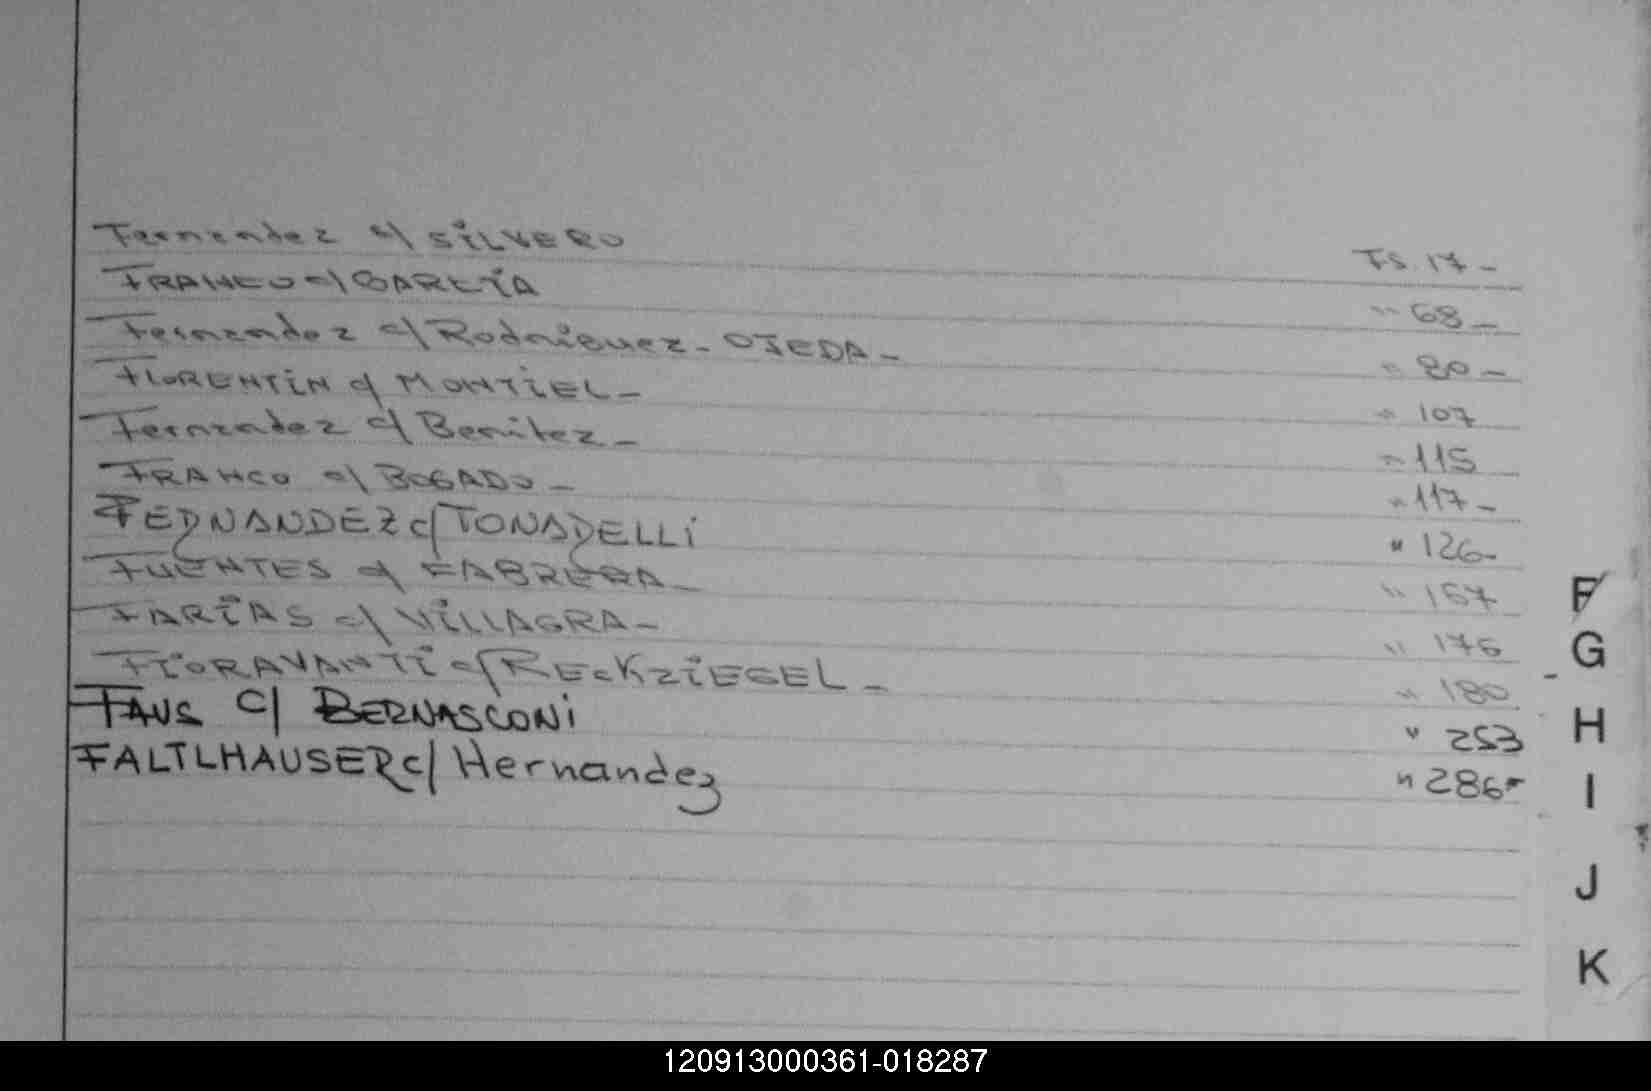 Fernandez c/ SILVERO Fs. 17-
FRANCO c/ GARCÍA " 68-
Fernandez c/ Rodriguez - OJEDA - " 80-
FLORENTIN c/ MONTIEL - " 107
Fernandez c/ Benitez - " 115
FRANCO c/ BOGADO - " 117-
FERNANDEZ c/ TONADELLI " 126-
FUENTES c/ CABRERA - " 167
FARIAS c/ VILLAGRA - " 176
FIORAVANTI c/ RECKZIEGEL - " 180
FAUS C/ BERNASCONI " 253
FALTLHAUSER c/ Hernandez " 286-
F
G
H
I
J
K
120913000361-018287